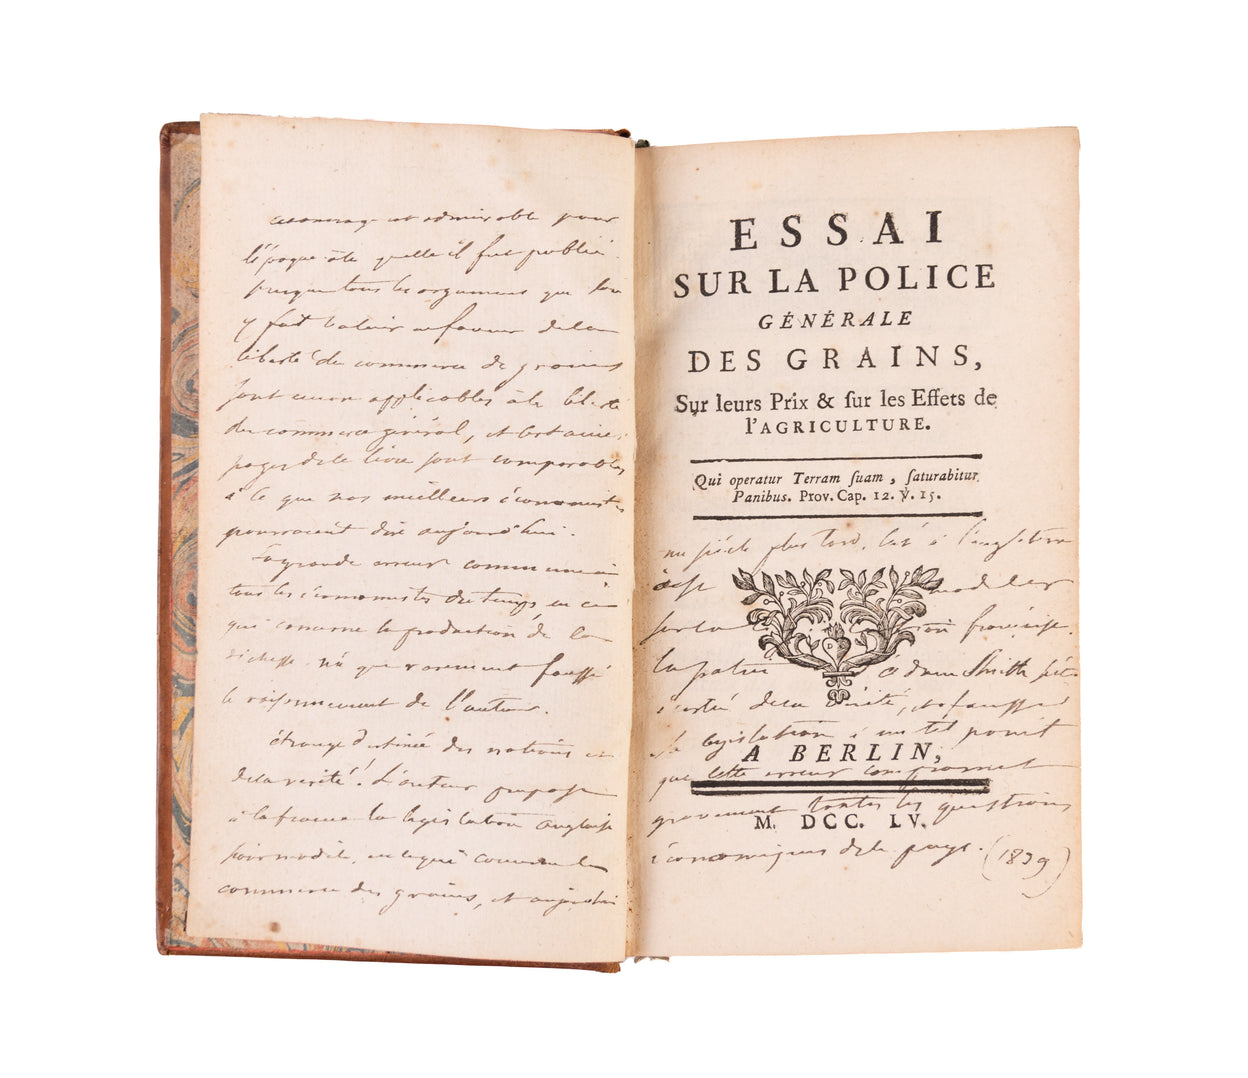 ouvrage est admirable pour
l'époque à laquelle il fut publié.
presque tous les argumens que l'on
y fait valoir en faveur de la
liberté du commerce de grains
sont encore applicables à la liberté
du commerce général, et certaines
pages de le livre sont comparables
à ce que nos meilleurs économistes
pourraient dire aujourd'hui.
La grande erreur commune à
tous les économistes du temps, en ce
qui concerne la production de la
richesse n'a que rarement faussé
le raisonnement de l'auteur.
étrange destinée des nations et
de la vérité! L'auteur propose
à la france la législation anglaise
pour modèle, en ce qui concerne le
commerce des grains, et aujourd'hui
ESSAI
SUR LA POLICE
GÉNÉRALE
DES GRAINS,
Sur leurs Prix & sur les Effets de
l'AGRICULTURE.
Qui operatur Terram suam, saturabitur
Panibus. Prov. Cap. 12. V. 15.
un siécle plus tard, c'est à l'angleterre
à se modeler
sur la française.
la patrie adam Smith s'est
écartée de la vérité, et a faussé
sa législation à un tel point
A BERLIN,
que cette erreur compromet
gravement toutes les questions
M. DCC. LV.
économiques de le pays. (1839)